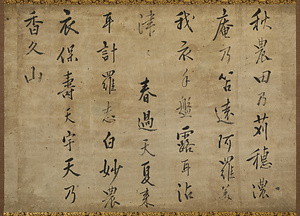 秋農田乃苅穂農
庵乃笘遠阿羅美
我衣手盤露耳沾
津々 春過天夏来
耳計羅志白妙農
衣保壽天宇天乃
香久山